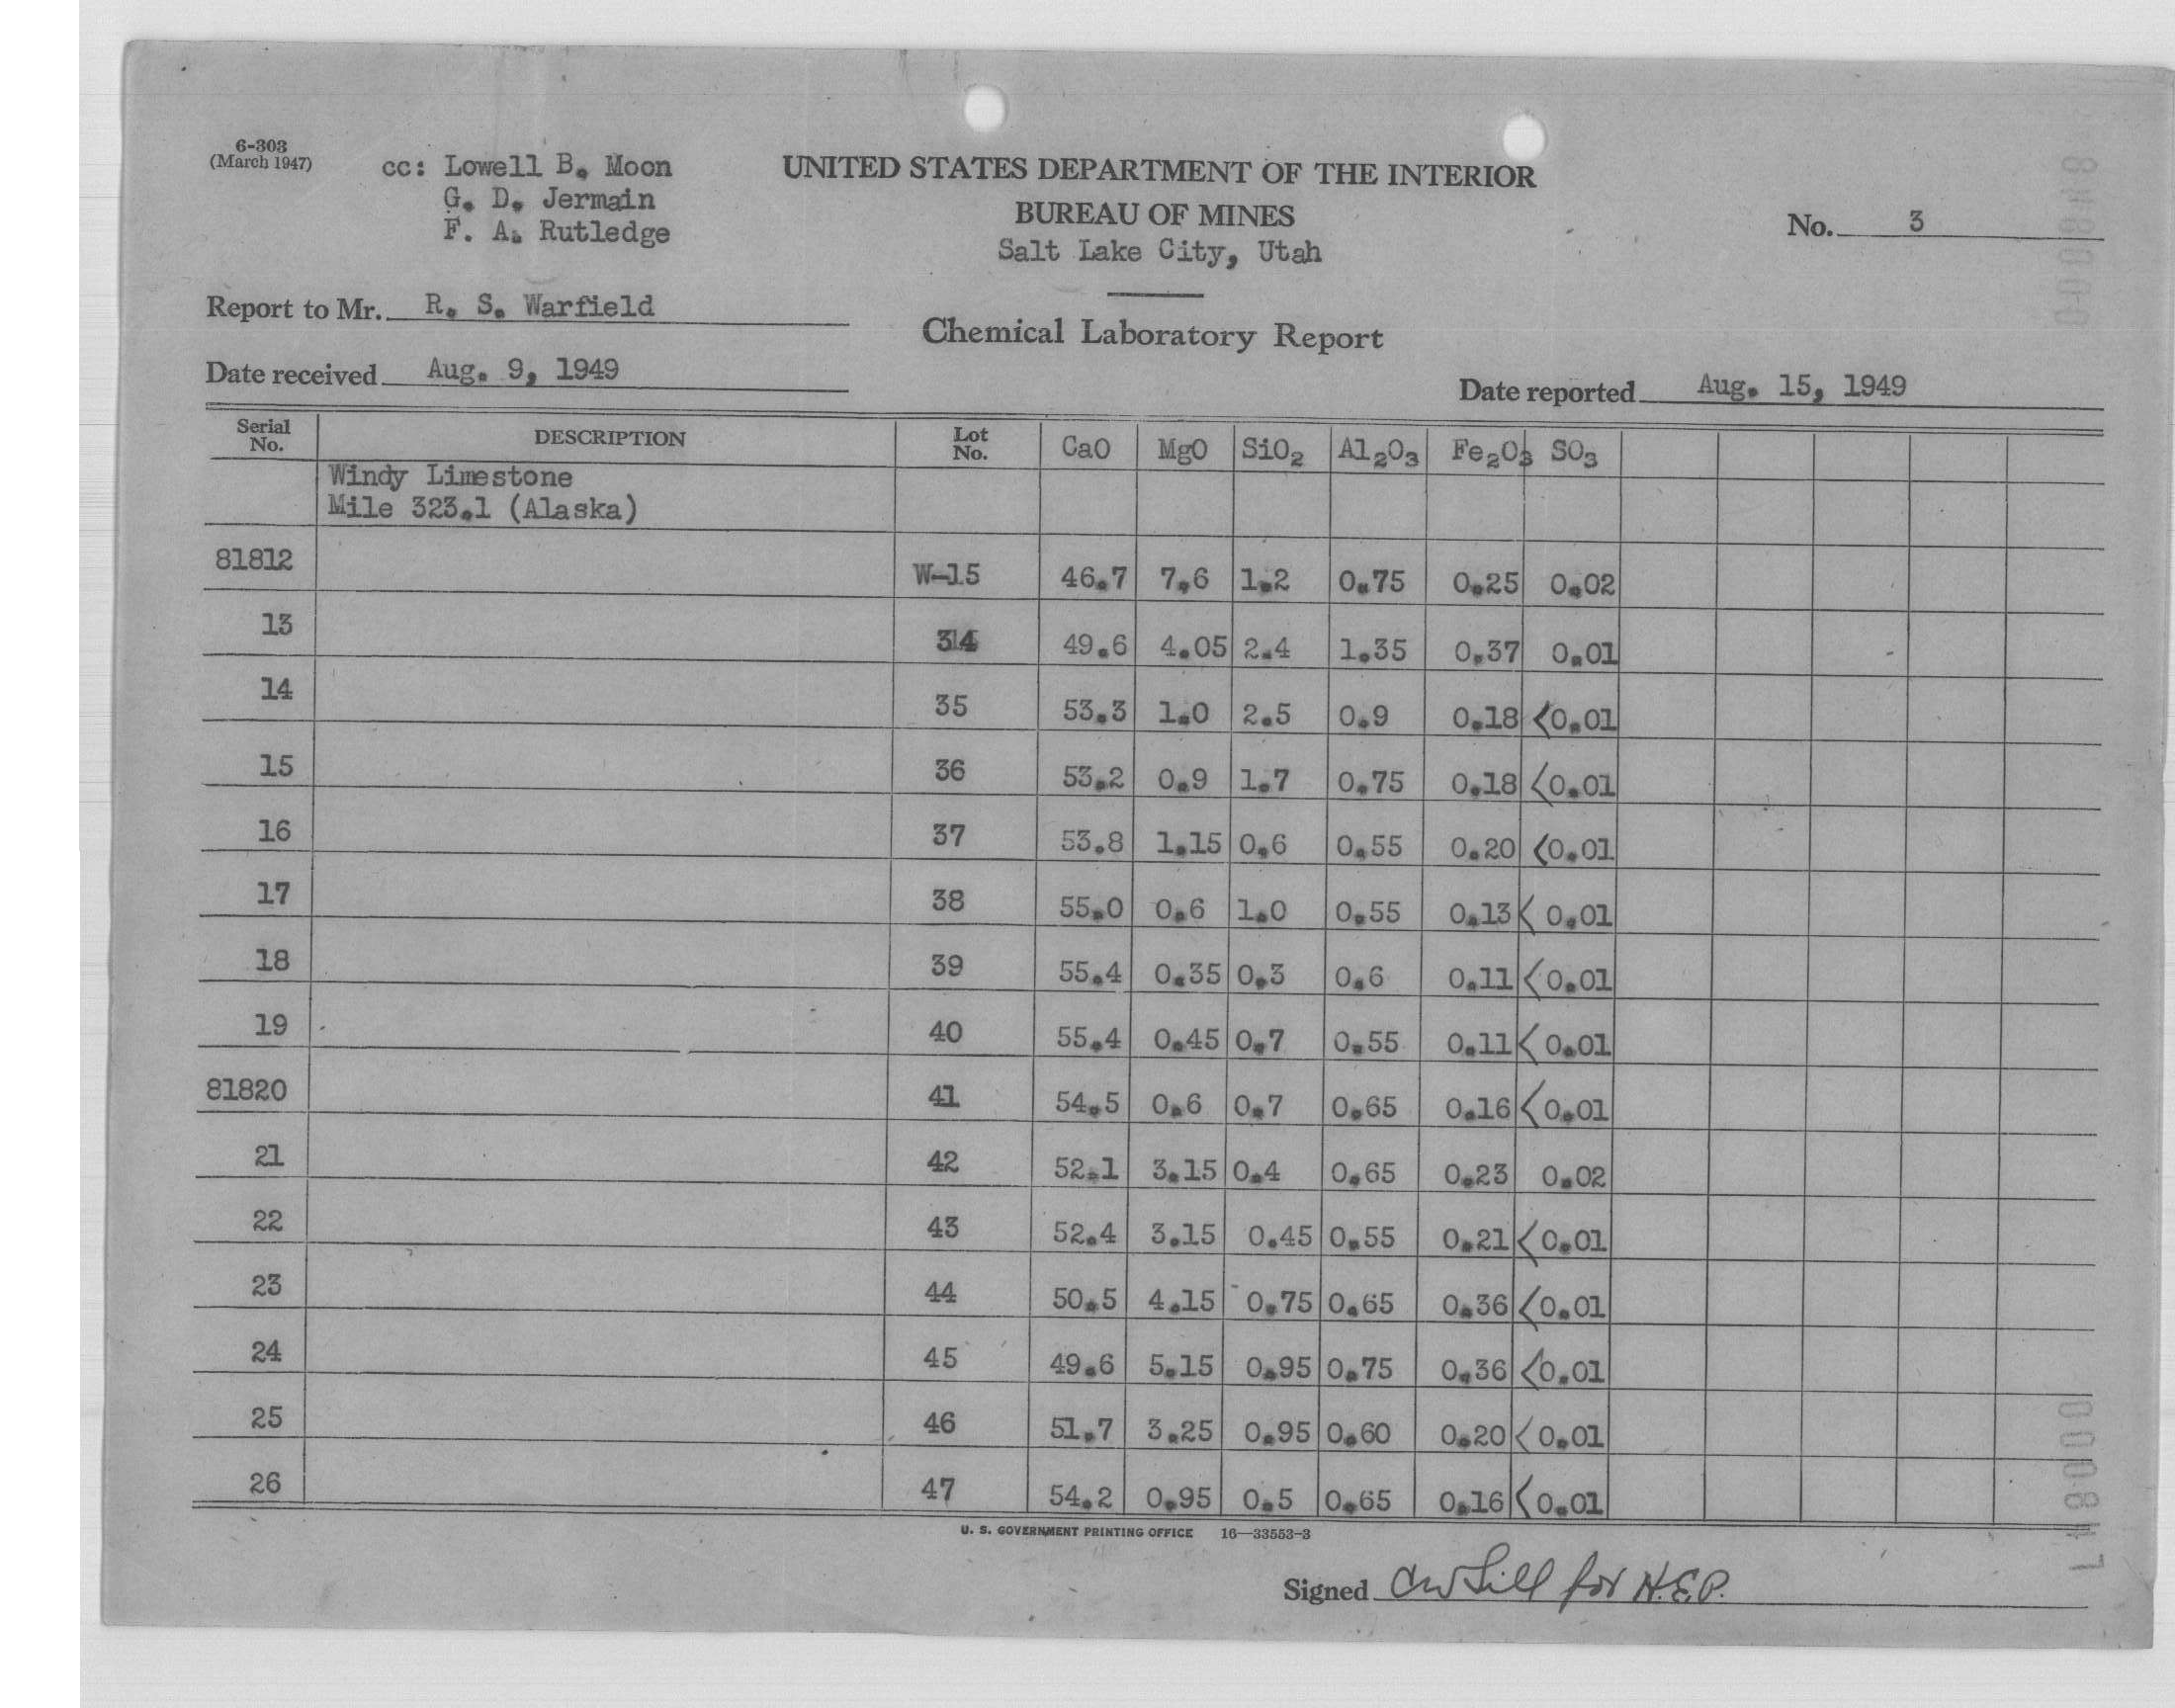 6-303
(March 1947)
cc: Lowell B. Moon
G. D. Jermain
F. A. Rutledge
UNITED STATES DEPARTMENT OF THE INTERIOR
BUREAU OF MINES
Salt Lake City, Utah
No. 3
Report to Mr. R. S. Warfield
Chemical Laboratory Report
Date received Aug. 9, 1949
Date reported Aug. 15, 1949
Serial No. DESCRIPTION Lot No. CaO MgO SiO2 Al2O3 Fe2O3 SO3
Windy Limestone
Mile 323.1 (Alaska)
81812 W-15 46.7 7.6 1.2 0.75 0.25 0.02
13 34 49.6 4.05 2.4 1.35 0.37 0.01
14 35 53.3 1.0 2.5 0.9 0.18 <0.01
15 36 53.2 0.9 1.7 0.75 0.18 <0.01
16 37 53.8 1.15 0.6 0.55 0.20 <0.01
17 38 55.0 0.6 1.0 0.55 0.13 < 0.01
18 39 55.4 0.35 0.3 0.6 0.11 <0.01
19 40 55.4 0.45 0.7 0.55 0.11 < 0.01
81820 41 54.5 0.6 0.7 0.65 0.16 <0.01
21 42 52.1 3.15 0.4 0.65 0.23 0.02
22 43 52.4 3.15 0.45 0.55 0.21 < 0.01
23 44 50.5 4.15 0.75 0.65 0.36 <0.01
24 45 49.6 5.15 0.95 0.75 0.36 <0.01
25 46 51.7 3.25 0.95 0.60 0.20 < 0.01
26 47 54.2 0.95 0.5 0.65 0.16 <0.01
U. S. GOVERNMENT PRINTING OFFICE 16—33553-3
Signed CW Sill for H.E.P.